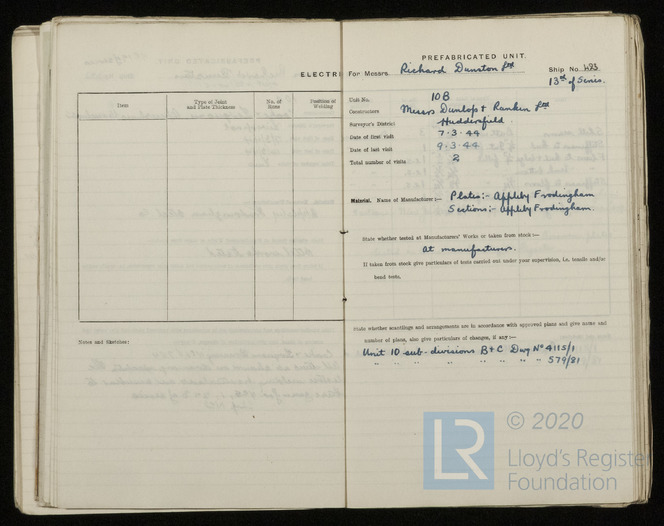 ELECTRI
Item
Type of Joint and Plate Thickness
No. of Runs
Position of Welding
Notes and Sketches:
PREFABRICATED UNIT.
For Messrs. Richard Dunston Ltd Ship No 493
13th of Series.
Unit No. 10B
Constructors Messrs Dunlop & Rankin Ltd
Surveyor's District Huddersfield.
Date of first visit 7.3.44
Date of last visit 9.3.44
Total number of visits 2
Material. Name of Manufacturer:— Plates:- Appleby Frodingham
Sections:- Appleby Frodingham.
State whether tested at Manufacturers' Works or taken from stock:—
At manufacturers.
If taken from stock give particulars of tests carried out under your supervision, i.e. tensile and/or
bend tests.
State whether scantlings and arrangements are in accordance with approved plans and give name and
number of plans, also give particulars of changes, if any:—
Unit 10 sub-divisions B+C Dwg No 4115/1
" " " " " " " 579/21
© 2020
LR Lloyd's Register
Foundation